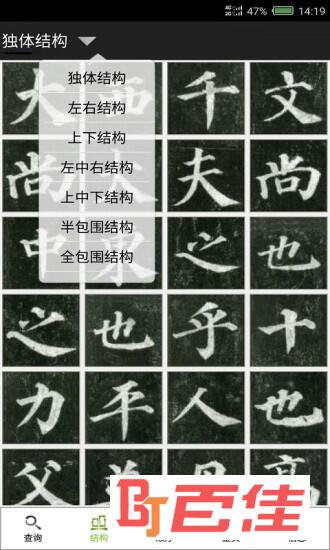 47% 14:19
独体结构
独体结构
左右结构
上下结构
左中右结构
上中下结构
半包围结构
全包围结构
大 西 千 文
尚 夫 尚
中 東 之 也
之 也 乎 十
力 平 人 也
父
查询 结构
百佳